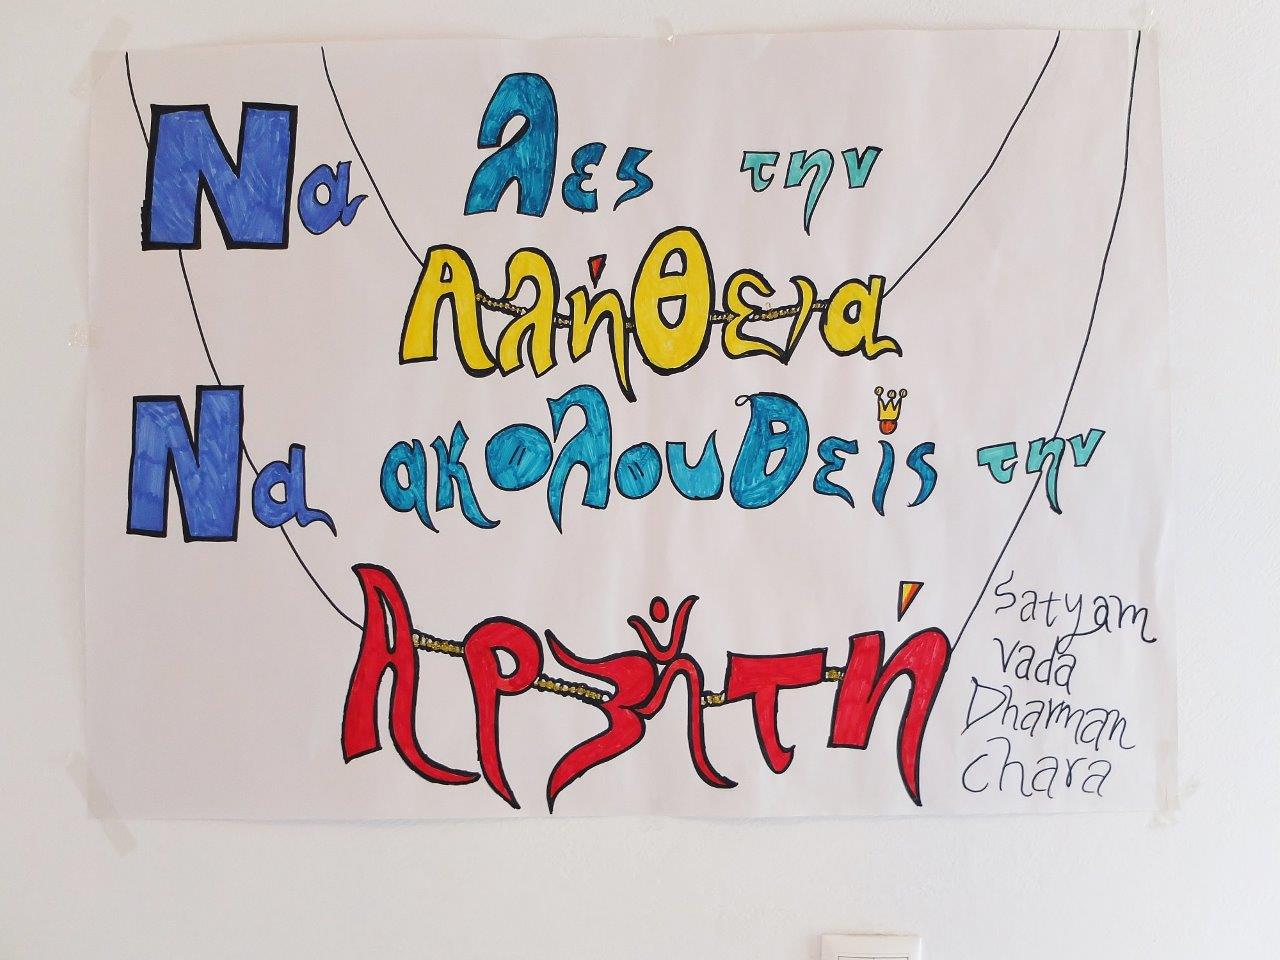 Να λες την
Αλήθεια
Να ακολουθείς την
Αρετή
Satyam
vada
Dharman
chara